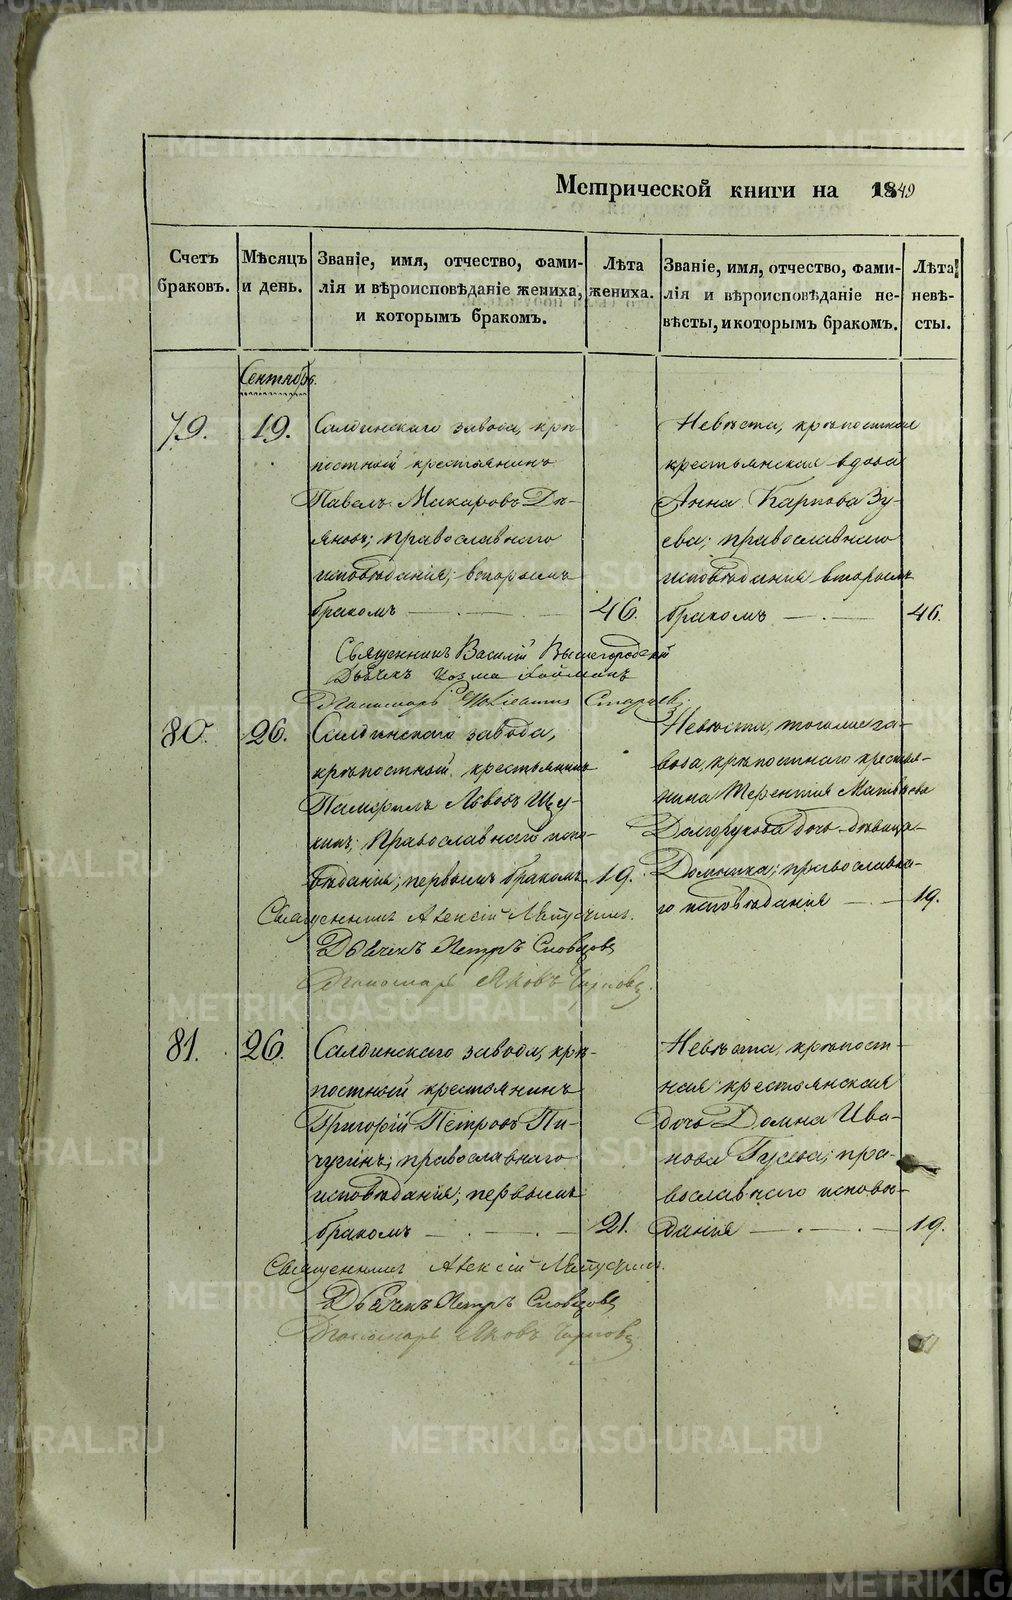 Метрической книги на 1849
Счетъ браковъ.
Мѣсяцъ и день.
Званіе, имя, отчество, фами-
лія и вѣроисповѣданіе жениха,
и которымъ бракомъ.
Лѣта
жениха.
Званіе, имя, отчество, фами-
лія и вѣроисповѣданіе не-
вѣсты, и которымъ бракомъ.
Лѣта
невѣ-
сты.
Сентябрь.
79.
19.
Салдинскаго завода, крѣ-
постный крестьянинъ
Павелъ Макаровъ Дь-
яновъ; православнаго
исповѣданія; вторымъ
бракомъ
46.
Невѣста, крѣпостная
крестьянская вдова
Анна Карпова Зу-
ева; православнаго
исповѣданія вторымъ
бракомъ
46.
Священникъ Василій Вышегородскій
Дьячекъ Козма
Пономарь
80.
26.
Салдинскаго завода,
крѣпостный крестьянинъ
Львовъ Щу-
кинъ; православнаго испо-
вѣданія; первымъ бракомъ
19.
Невѣста, тогоже за-
вода, крѣпостнаго крестья-
нина Терентія Матвѣева
Долгорукова дочь девица
Домника; православна-
го исповѣданія
19.
Священникъ Алексій
Дьячекъ Петръ Словцовъ
Пономарь Яковъ
81.
26.
Салдинскаго завода, крѣ-
постный крестьянинъ
Григорій Петровъ Пи-
чугинъ; православнаго
исповѣданія; первымъ
бракомъ
21.
Невѣста, крѣпост-
ная крестьянская
дочь Домна Ива-
нова Гусева; пра-
вославнаго исповѣ-
данія
19.
Священникъ Алексій
Дьячекъ Петръ Словцовъ
Пономарь Яковъ
METRIKI.GASO-URAL.RU